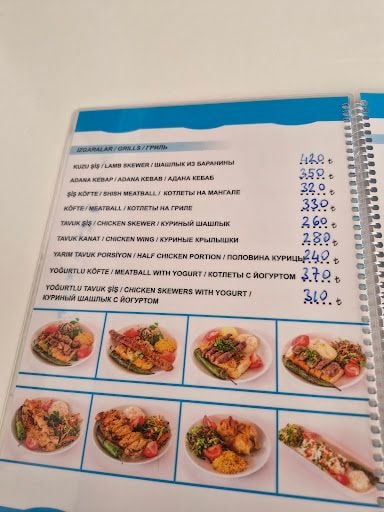 IZGARALAR / GRILLS / ГРИЛЬ
KUZU ŞİŞ / LAMB SKEWER / ШАШЛЫК ИЗ БАРАНИНЫ 420 ₺
ADANA KEBAP / ADANA KEBAB / АДАНА КЕБАБ 350 ₺
ŞİŞ KÖFTE / SHISH MEATBALL / КОТЛЕТЫ НА МАНГАЛЕ 320 ₺
KÖFTE / MEATBALL / КОТЛЕТЫ НА ГРИЛЕ 330 ₺
TAVUK ŞİŞ / CHICKEN SKEWER / КУРИНЫЙ ШАШЛЫК 260 ₺
TAVUK KANAT / CHICKEN WING / КУРИНЫЕ КРЫЛЫШКИ 280 ₺
YARIM TAVUK PORSİYON / HALF CHICKEN PORTION / ПОЛОВИНА КУРИЦЫ 240 ₺
YOĞURTLU KÖFTE / MEATBALL WITH YOGURT / КОТЛЕТЫ С ЙОГУРТОМ 370 ₺
YOĞURTLU TAVUK ŞİŞ / CHICKEN SKEWERS WITH YOGURT /
КУРИНЫЙ ШАШЛЫК С ЙОГУРТОМ 310 ₺